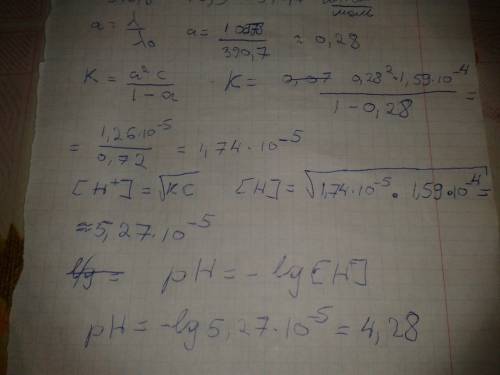 моль
a = λ/λ₀ a = /390,7 ≈ 0,28
K = a²c/(1 - a) · K = 0,28² · 1,59 · 10⁻⁴/(1 - 0,28) =
= 1,26 · 10⁻⁵/0,72 = 1,74 · 10⁻⁵
[H⁺] = √KC [H] = √1,74 · 10⁻⁵ · 1,59 · 10⁻⁴ =
≈ 5,27 · 10⁻⁵
pH = -lg[H]
pH = -lg 5,27 · 10⁻⁵ = 4,28